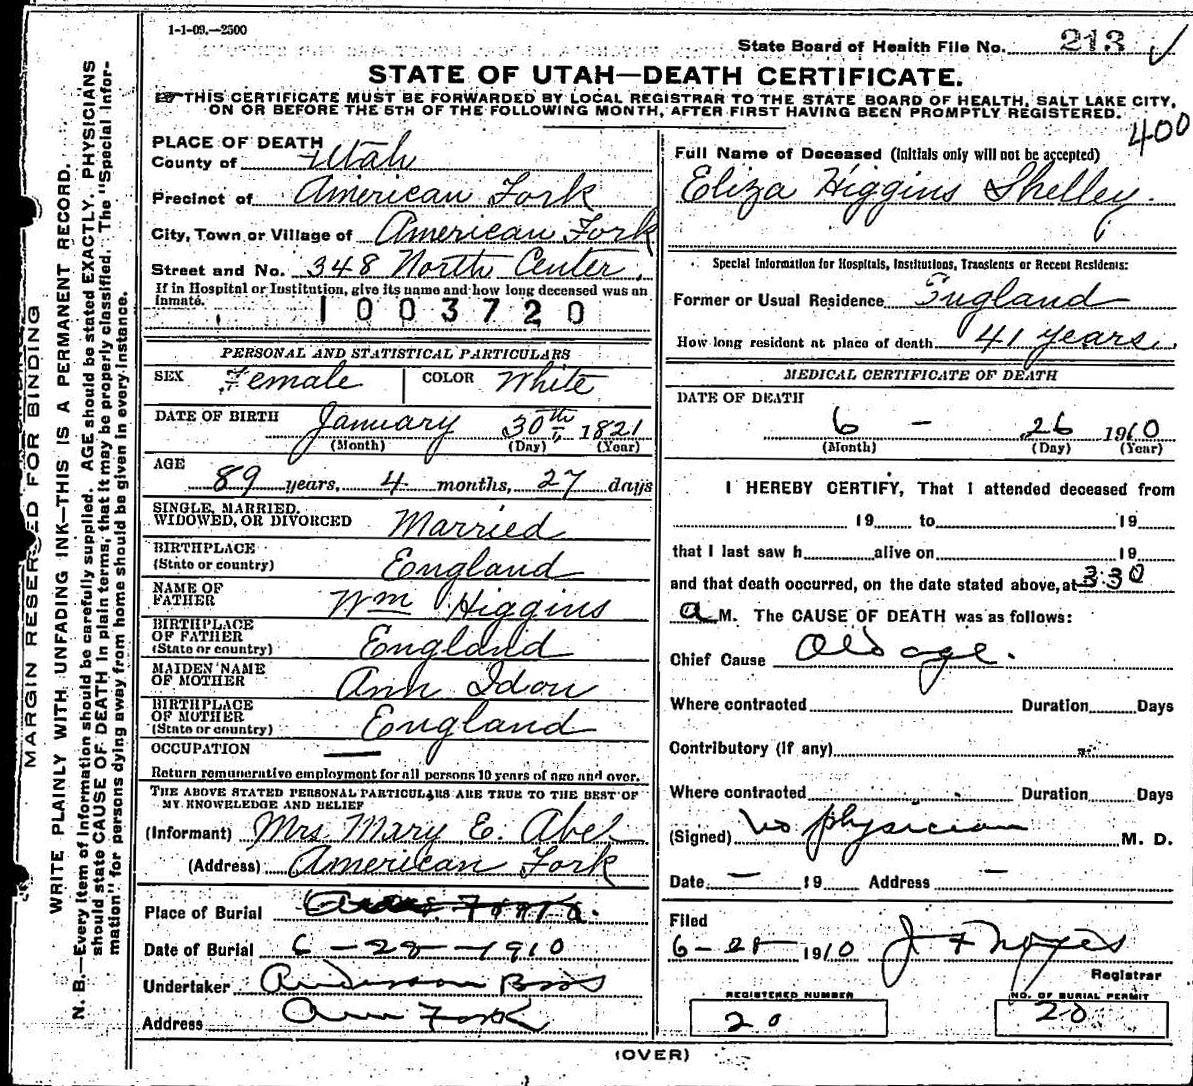 1-1-09.—2500
State Board of Health File No. 213
STATE OF UTAH—DEATH CERTIFICATE.
THIS CERTIFICATE MUST BE FORWARDED BY LOCAL REGISTRAR TO THE STATE BOARD OF HEALTH, SALT LAKE CITY,
ON OR BEFORE THE 5TH OF THE FOLLOWING MONTH, AFTER FIRST HAVING BEEN PROMPTLY REGISTERED.
400
PLACE OF DEATH
County of Utah
Precinct of American Fork
City, Town or Village of American Fork
Street and No. 348 North Center.
If in Hospital or Institution, give its name and how long deceased was an
inmate.
1003720
PERSONAL AND STATISTICAL PARTICULARS
SEX Female COLOR White
DATE OF BIRTH January 30th, 1821
(Month) (Day) (Year)
AGE
89 years, 4 months, 27 days
SINGLE, MARRIED,
WIDOWED, OR DIVORCED Married
BIRTHPLACE
(State or country) England
NAME OF
FATHER Wm Higgins
BIRTHPLACE
OF FATHER
(State or country) England
MAIDEN NAME
OF MOTHER Ann Idon
BIRTHPLACE
OF MOTHER
(State or country) England
OCCUPATION —
Return remunerative employment for all persons 10 years of age and over.
THE ABOVE STATED PERSONAL PARTICULARS ARE TRUE TO THE BEST OF
MY KNOWLEDGE AND BELIEF
(Informant) Mrs. Mary E. Abel
(Address) American Fork
Place of Burial
Date of Burial 6-28-1910
Undertaker Anderson Bros
Address Am Fork
Full Name of Deceased (Initials only will not be accepted)
Eliza Higgins Shelley.
Special Information for Hospitals, Institutions, Transients or Recent Residents:
Former or Usual Residence England
How long resident at place of death 41 years.
MEDICAL CERTIFICATE OF DEATH
DATE OF DEATH
6 - 26 1910
(Month) (Day) (Year)
I HEREBY CERTIFY, That I attended deceased from
19 to 19
that I last saw h alive on 19
and that death occurred, on the date stated above, at 3:30
a M. The CAUSE OF DEATH was as follows:
Chief Cause Old age.
Where contracted Duration Days
Contributory (If any)
Where contracted Duration Days
(Signed) No physician M. D.
Date — 19 Address —
Filed
6-28 1910 J F Noyes
Registrar
REGISTERED NUMBER
20
NO. OF BURIAL PERMIT
20
(OVER)
MARGIN RESERVED FOR BINDING
WRITE PLAINLY WITH UNFADING INK—THIS IS A PERMANENT RECORD.
N. B.—Every item of information should be carefully supplied. AGE should be stated EXACTLY. PHYSICIANS
should state CAUSE OF DEATH in plain terms, that it may be properly classified. The "Special Infor-
mation" for persons dying away from home should be given in every instance.